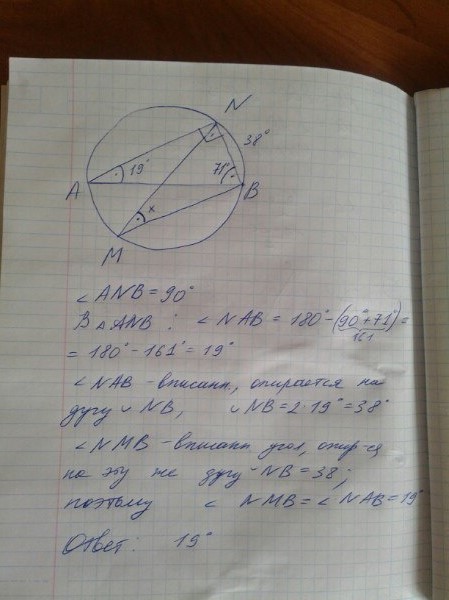 N
38°
19°
71°
A
B
x
M
∠ANB = 90°
В △ANB : ∠NAB = 180° - (90° + 71°) =
161
= 180° - 161° = 19°
∠NAB - вписанн., опирается на
дугу ∪ NB, ∪ NB = 2·19° = 38°
∠NMB - вписанн угол, опир-ся
на эту же дугу ∪ NB = 38;
поэтому ∠NMB = ∠NAB = 19°
Ответ: 19°